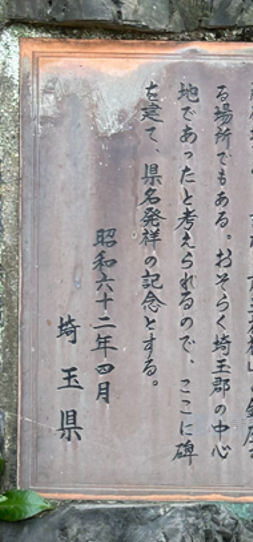 る場所でもある。おそらく埼玉郡の中心
地であったと考えられるので、ここに碑
を建て、県名発祥の記念とする。
昭和六十二年四月
埼玉県